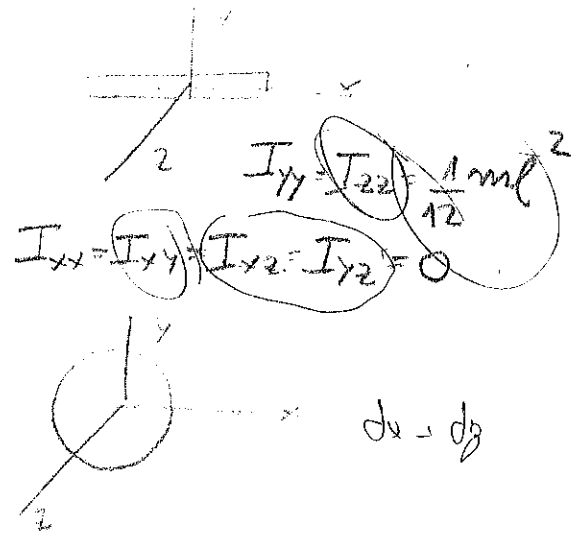 x
z
I_yy = I_zz = 1/12 ml^2
I_xx = I_xy = I_xz = I_yz = 0
y
x
z